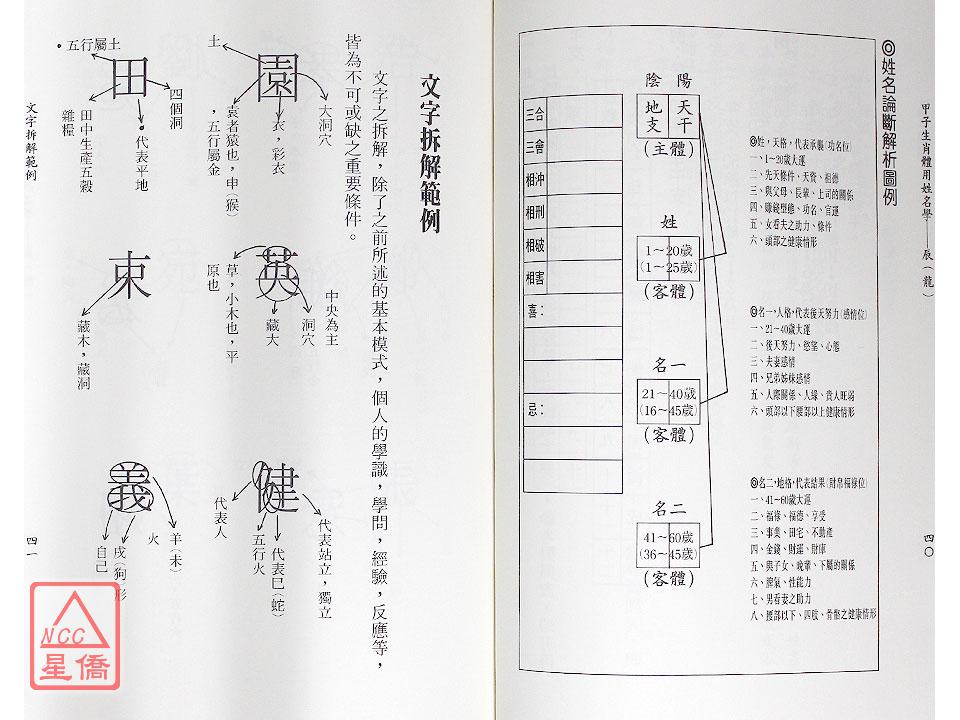 甲子生肖體用姓名學——辰（龍）
四〇
◎姓名論斷解析圖例
◎姓，天格，代表承襲(功名位)
一、1～20歲大運
二、先天條件、天資、祖德
三、與父母、長輩、上司的關係
四、賺錢型態、功名、官運
五、女看夫之助力、條件
六、頭部之健康情形
◎名一，人格，代表後天努力(感情位)
一、21～40歲大運
二、後天努力、慾望、心態
三、夫妻感情
四、兄弟姊妹感情
五、人際關係、人緣、貴人旺弱
六、頭部以下腰部以上健康情形
◎名二，地格，代表結果(財帛福祿位)
一、41～60歲大運
二、福祿、福德、享受
三、事業、田宅、不動產
四、金錢、財運、財庫
五、與子女、晚輩、下屬的關係
六、脾氣、性能力
七、男看妻之助力
八、腰部以下、四肢、骨骼之健康情形
陰 陽
地支 天干
(主體)
姓
1～20歲
(1～25歲)
(客體)
名一
21～40歲
(16～45歲)
(客體)
名二
41～60歲
(36～45歲)
(客體)
三合
三會
相沖
相刑
相破
相害
喜：
忌：
文字拆解範例
文字之拆解，除了之前所述的基本模式，個人的學識，學問，經驗，反應等，
皆為不可或缺之重要條件。
園
大洞穴
衣，彩衣
袁者猿也，申（猴）
，五行屬金
土
英
中央為主
洞穴
藏大
草，小木也，平
原也
健
代表站立，獨立
代表巳（蛇）
五行火
代表人
田
四個洞
代表平地
田中生產五穀
雜糧
五行屬土
束
藏木，藏洞
義
羊（未）
火
戌（狗）形
自己
文字拆解範例
四一
NCC
星僑